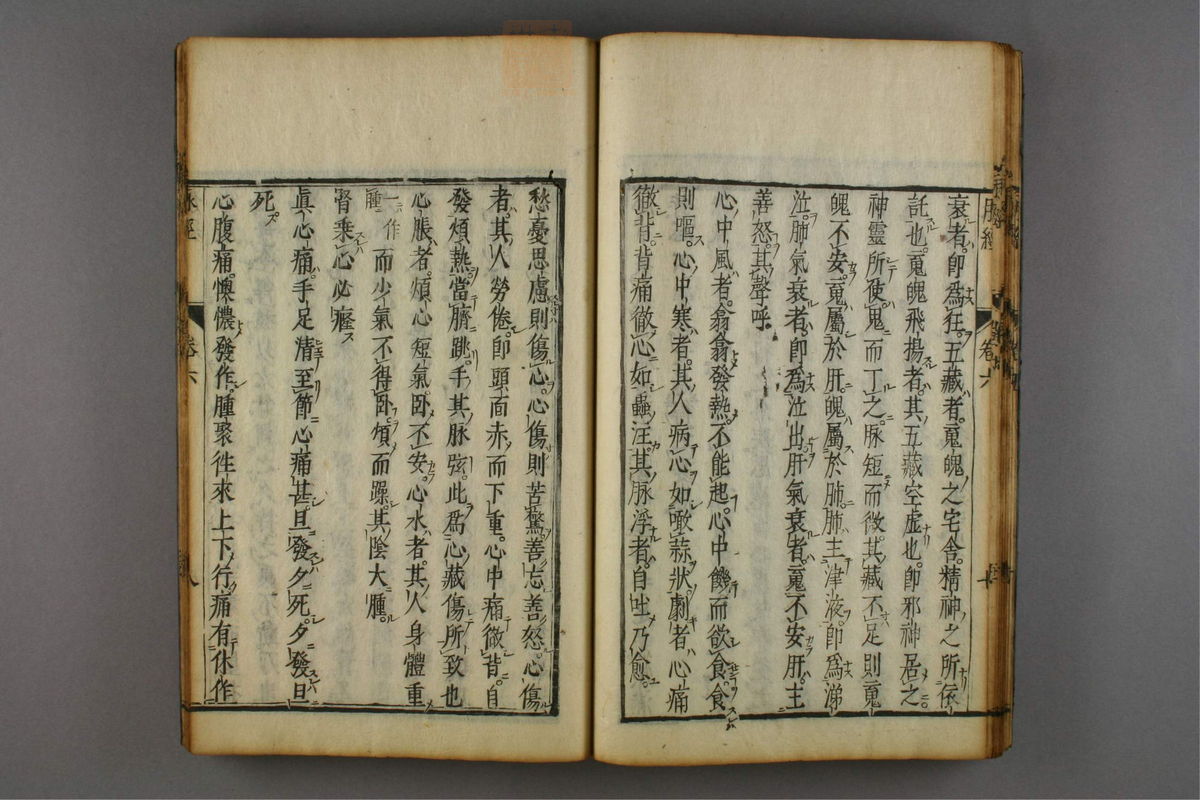 衰者即爲狂五藏者䰟魄之宅舍精神之所依
託也䰟魄飛揚者其五藏空虚也即邪神居之
神靈所使鬼而下之脉短而微其藏不足則䰟
魄不安䰟屬於肝魄屬於肺肺主津液即爲涕
泣肺氣衰者即爲泣出肝氣衰者䰟不安肝主
善怒其聲呼
心中風者翕翕發熱不能起心中饑而欲食食
則嘔心中寒者其人病心如噉蒜狀劇者心痛
徹背背痛徹心如蟲注其脉浮者自吐乃愈
愁憂思慮則傷心心傷則苦驚善忘善怒心傷
者其人勞倦即頭面赤而下重心中痛徹背自
發煩熱當臍跳手其脉弦此爲心藏傷所致也
心脹者煩心短氣卧不安心水者其人身體重
一作腫而少氣不得卧煩而躁其陰大腫
腎乘心必癃
眞心痛手足清至節心痛甚旦發夕死夕發旦
死
心腹痛懊憹發作腫聚徃來上下行痛有休作
脉經
卷六